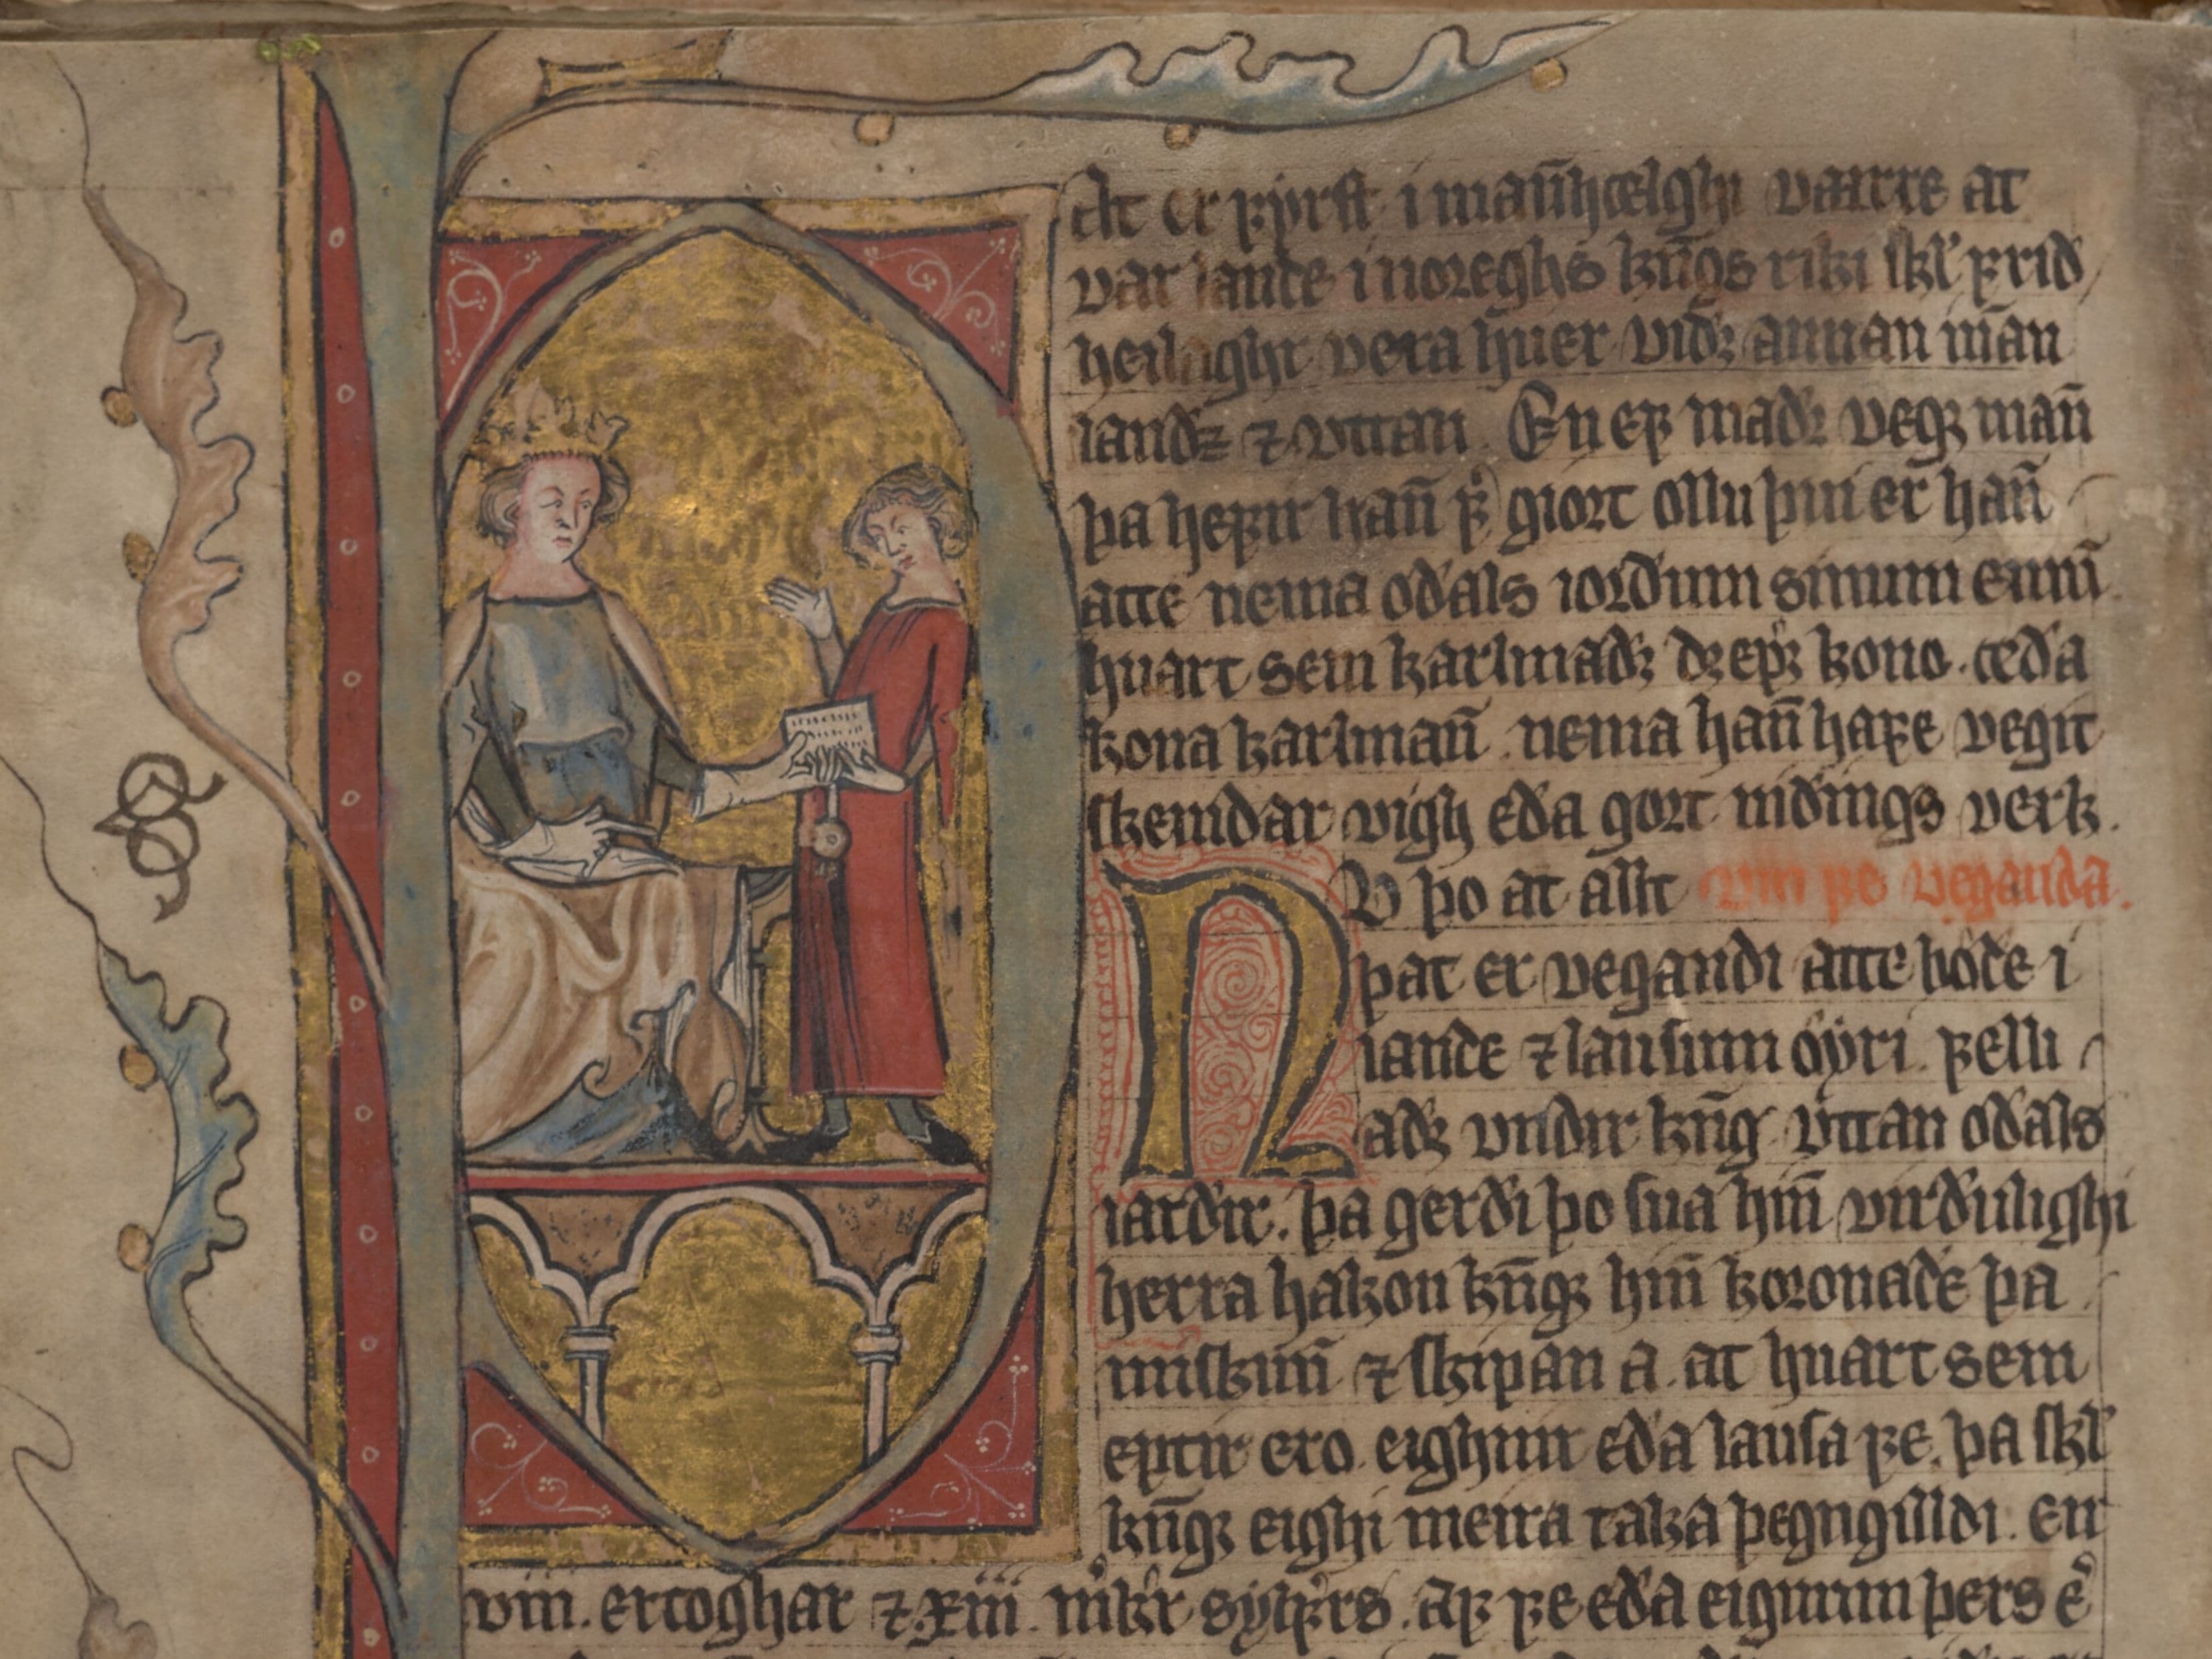 At er fyrst i man̄hælghi varre at
var lande i noreghs kn̄gs riki skl' frid
heilaght vera huer vidꝛ annan in̄an
landz ⁊ vttan. En ef madꝛ vegꝛ man̄
þa hefir han̄ f' giort ollu þui er han̄
atte nema odals iordum sinum einū.
huart sem karlmadꝛ dꝛepꝛ kono. æda
kona karlman̄. nema han̄ hafe vegit
skemdar vigh eda gort nidings verk.
NV þo at allt vm fe veganda.
þat er vegandi atte bóde i
lande ⁊ lausum óyri. felli
adꝛ vndir kn̄g vttan odals
iardir. þa gerdi þo sua hin̄ virdulighi
herra hakon kn̄gꝛ hin̄ koronade þa
miskun̄ ⁊ skipan a. at huart sem
eptir ero. eighnir eda lausa fe. þa skl'
kn̄gꝛ eighi meira taka þegngilldi. en
viii. ertoghar ⁊ xiii. m'kr sylfrs. af fe eda eignum þers e'